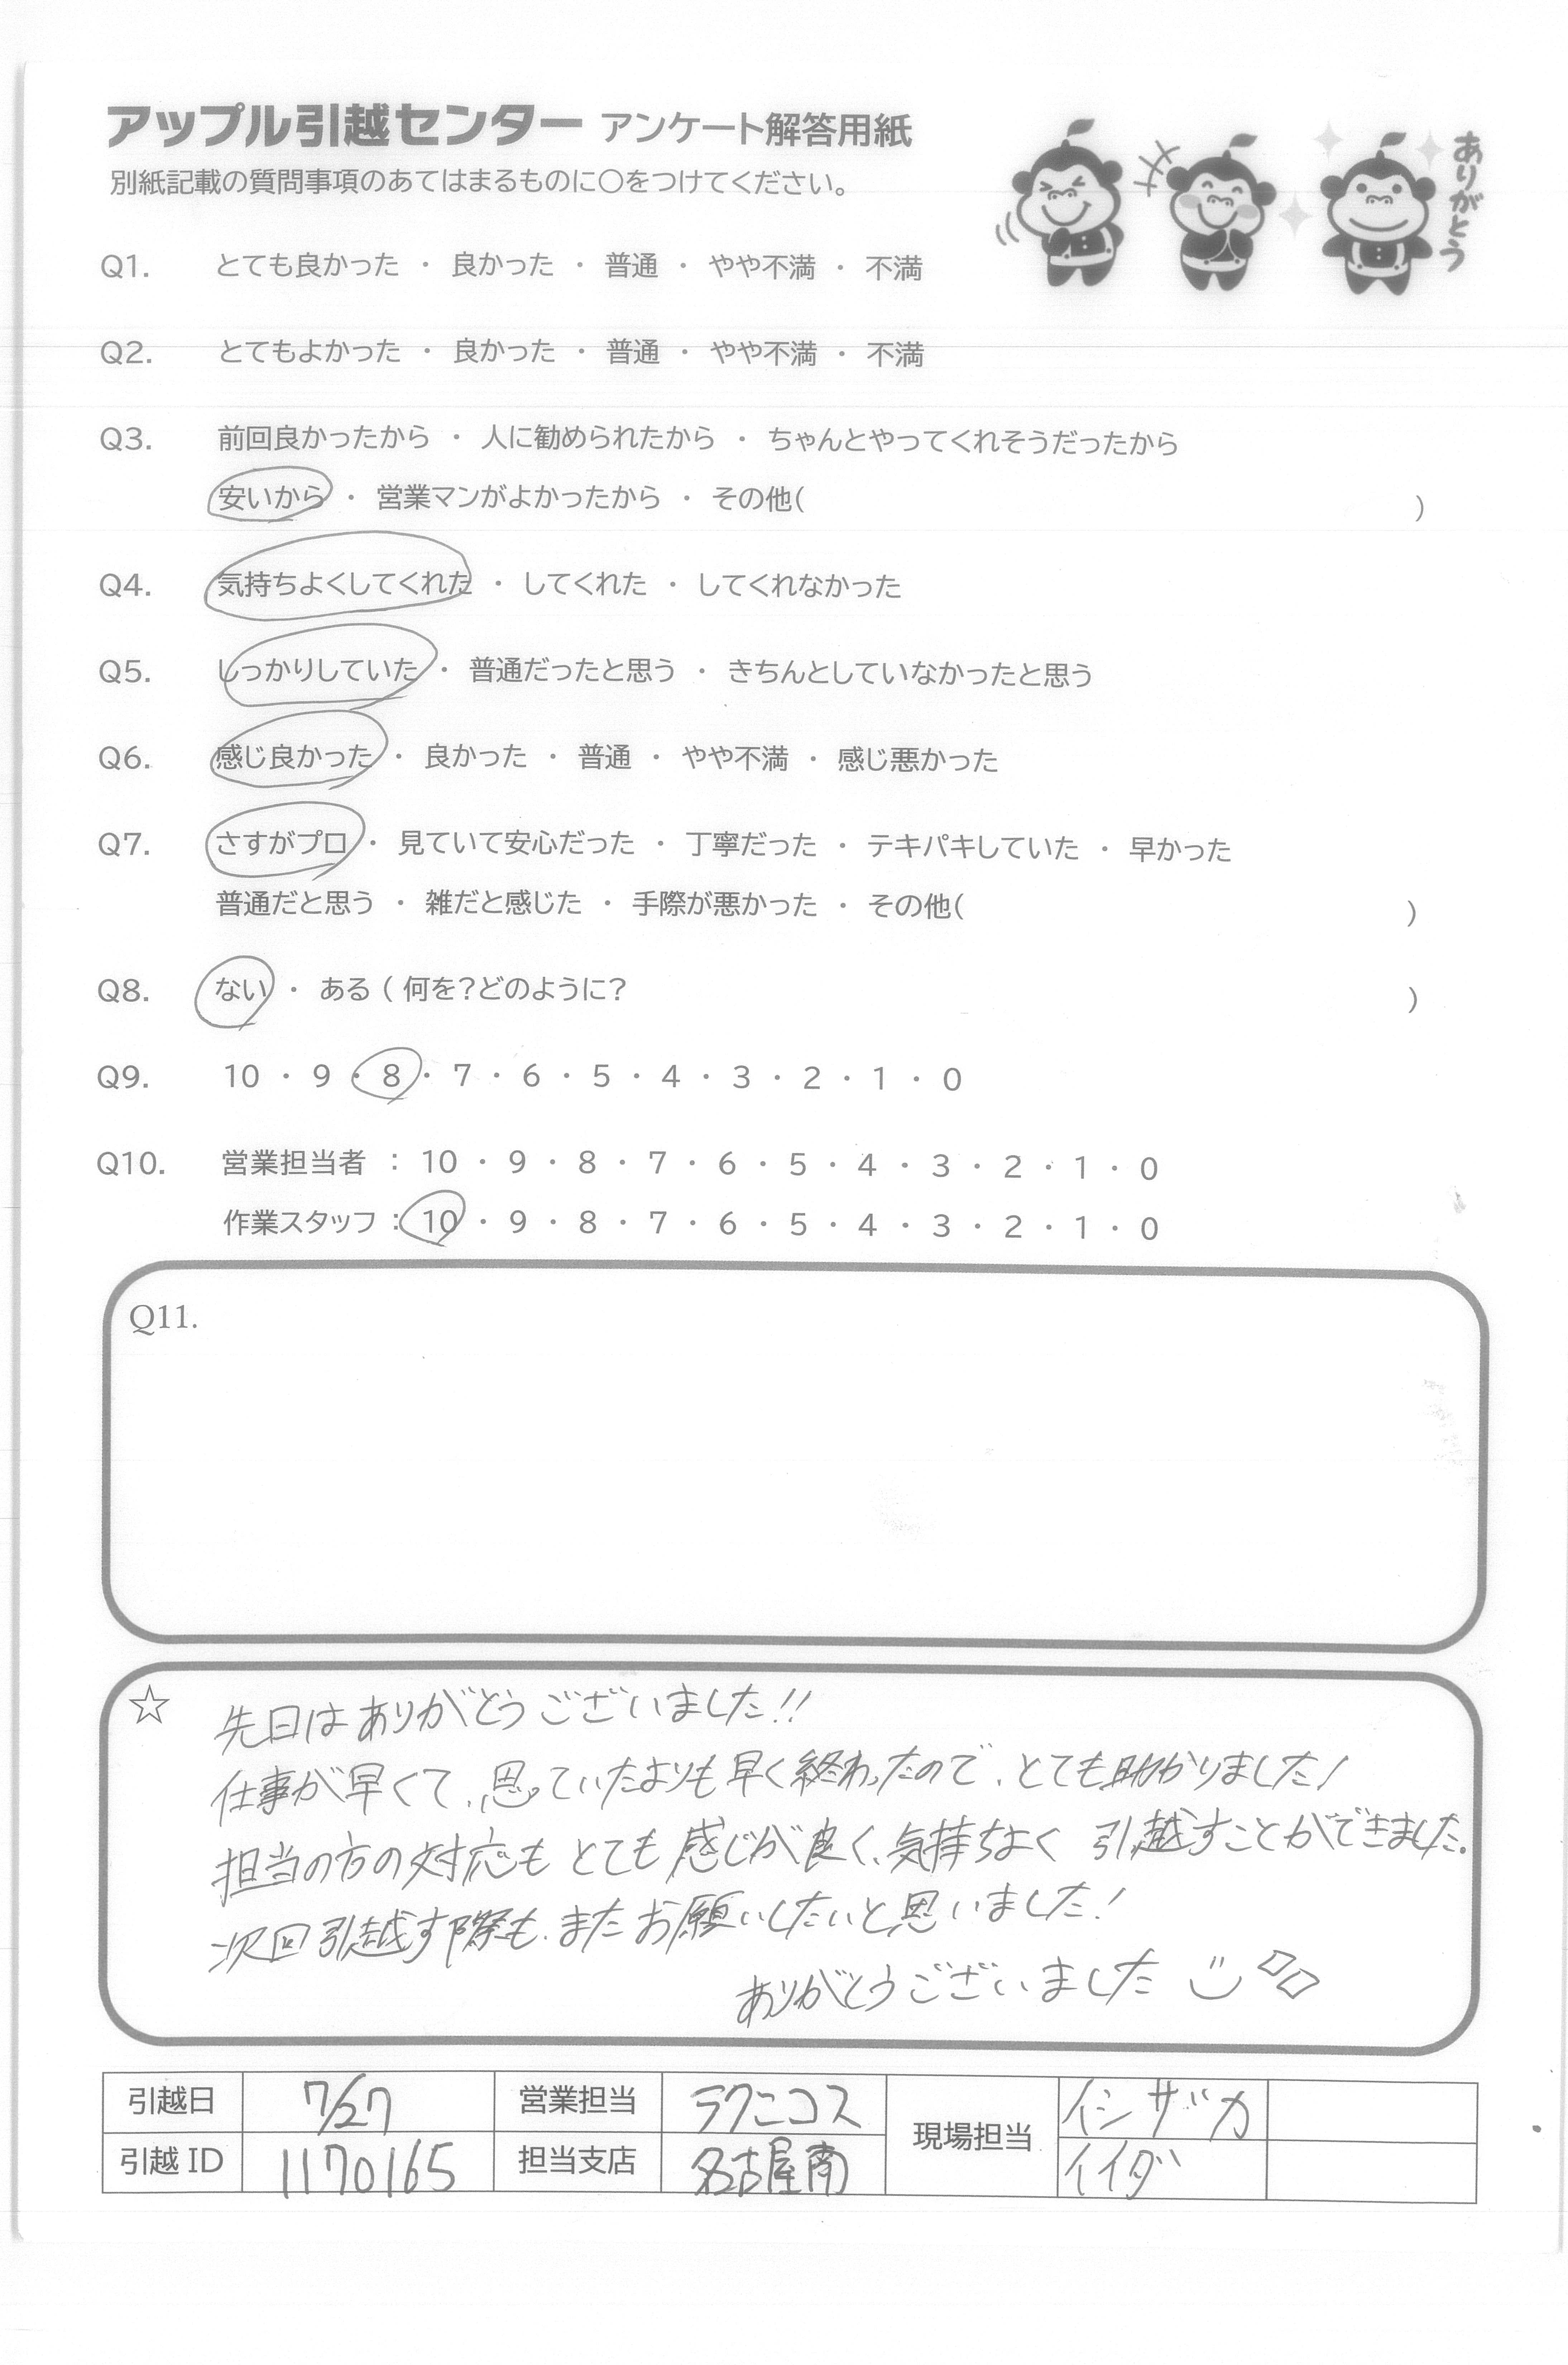 アップル引越センター アンケート解答用紙
ありがとう
別紙記載の質問事項のあてはまるものに○をつけてください。
Q1. とても良かった ・ 良かった ・ 普通 ・ やや不満 ・ 不満
Q2. とてもよかった ・ 良かった ・ 普通 ・ やや不満 ・ 不満
Q3. 前回良かったから ・ 人に勧められたから ・ ちゃんとやってくれそうだったから
安いから ・ 営業マンがよかったから ・ その他( )
Q4. 気持ちよくしてくれた ・ してくれた ・ してくれなかった
Q5. しっかりしていた ・ 普通だったと思う ・ きちんとしていなかったと思う
Q6. 感じ良かった ・ 良かった ・ 普通 ・ やや不満 ・ 感じ悪かった
Q7. さすがプロ ・ 見ていて安心だった ・ 丁寧だった ・ テキパキしていた ・ 早かった
普通だと思う ・ 雑だと感じた ・ 手際が悪かった ・ その他( )
Q8. ない ・ ある ( 何を?どのように? )
Q9. 10 ・ 9 ・ 8 ・ 7 ・ 6 ・ 5 ・ 4 ・ 3 ・ 2 ・ 1 ・ 0
Q10. 営業担当者 : 10 ・ 9 ・ 8 ・ 7 ・ 6 ・ 5 ・ 4 ・ 3 ・ 2 ・ 1 ・ 0
作業スタッフ : 10 ・ 9 ・ 8 ・ 7 ・ 6 ・ 5 ・ 4 ・ 3 ・ 2 ・ 1 ・ 0
Q11.
☆ 先日はありがとうございました!!
仕事が早くて、思っていたよりも早く終わったので、とても助かりました!
担当の方の対応もとても感じが良く、気持ちよく引越すことができました.
次回引越す際も、またお願いしたいと思いました!
ありがとうございました
引越日 7/27 営業担当 ラクニコス 現場担当 イシザカ
引越 ID 1170165 担当支店 名古屋南 イイダ